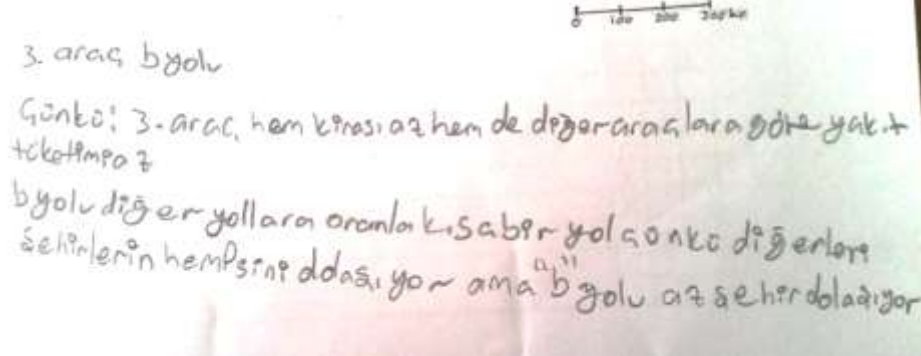 0 100 200 300km
3. araç b yolu
Çünkü: 3. araç, hem kirası az hem de diğer araçlara göre yakıt
tüketimi az
b yolu diğer yollara oranla kısa bir yol çünkü diğerleri
şehirlerin hempsini ddaşıyor ama "b" yolu az şehir dolaşıyor